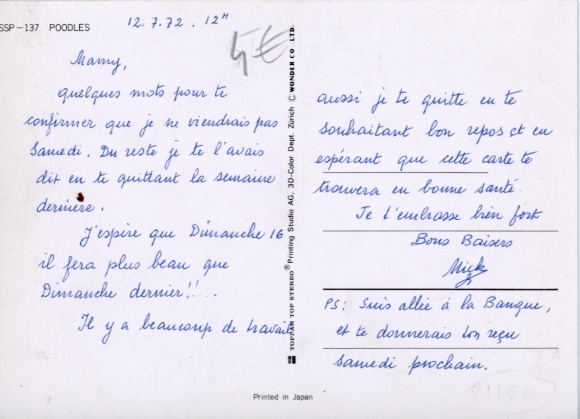 SSP-137 POODLES
12.7.72. 12H
5€
Mamy,
quelques mots pour te
confirmer que je ne viendrais pas
Samedi. Du reste je te l'avais
dit en te quittant la semaine
dernière.
J'espère que Dimanche 16
il fera plus beau que
Dimanche dernier!!...
Il y a beaucoup de travail
TOPPAN TOP STEREO® Printing Studio AG. 3D-Color Dept. Zürich © WONDER CO. LTD.
aussi je te quitte en te
souhaitant bon repos et en
espérant que cette carte te
trouvera en bonne santé.
Je t'embrasse bien fort
Bons Baisers
Mick
PS: Suis allée à la Banque,
et te donnerais ton reçu
Samedi prochain.
Printed in Japan